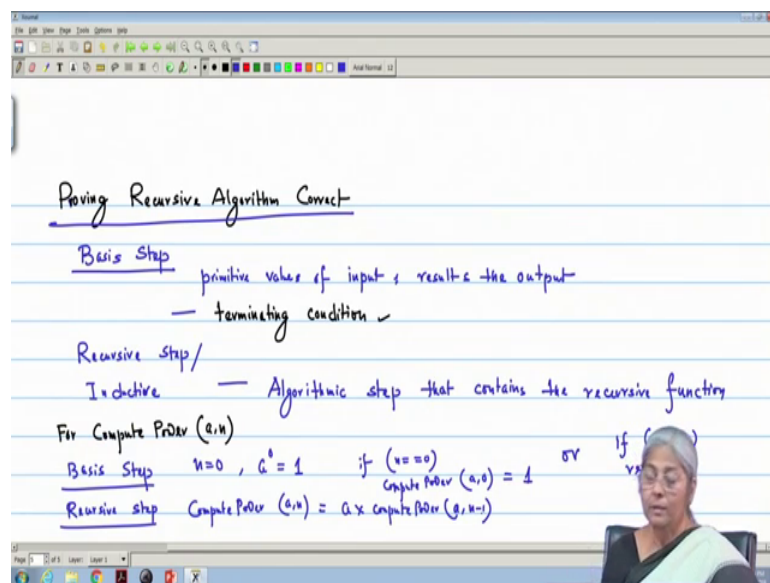 Journal
File Edit View Page Tools Options Help
Arial Normal 12
Proving Recursive Algorithm Correct
Basis Step
primitive values of input, results the output
— terminating condition ✓
Recursive step/
Inductive — Algorithmic step that contains the recursive function
For Compute Power (a,n)
Basis Step n=0, a⁰ = 1 if (n==0) or If (
compute Power (a,0) = 1
Recursive step Compute Power (a,n) = a x compute Power (a, n-1)
Page 5 of 5 Layer: Layer 1